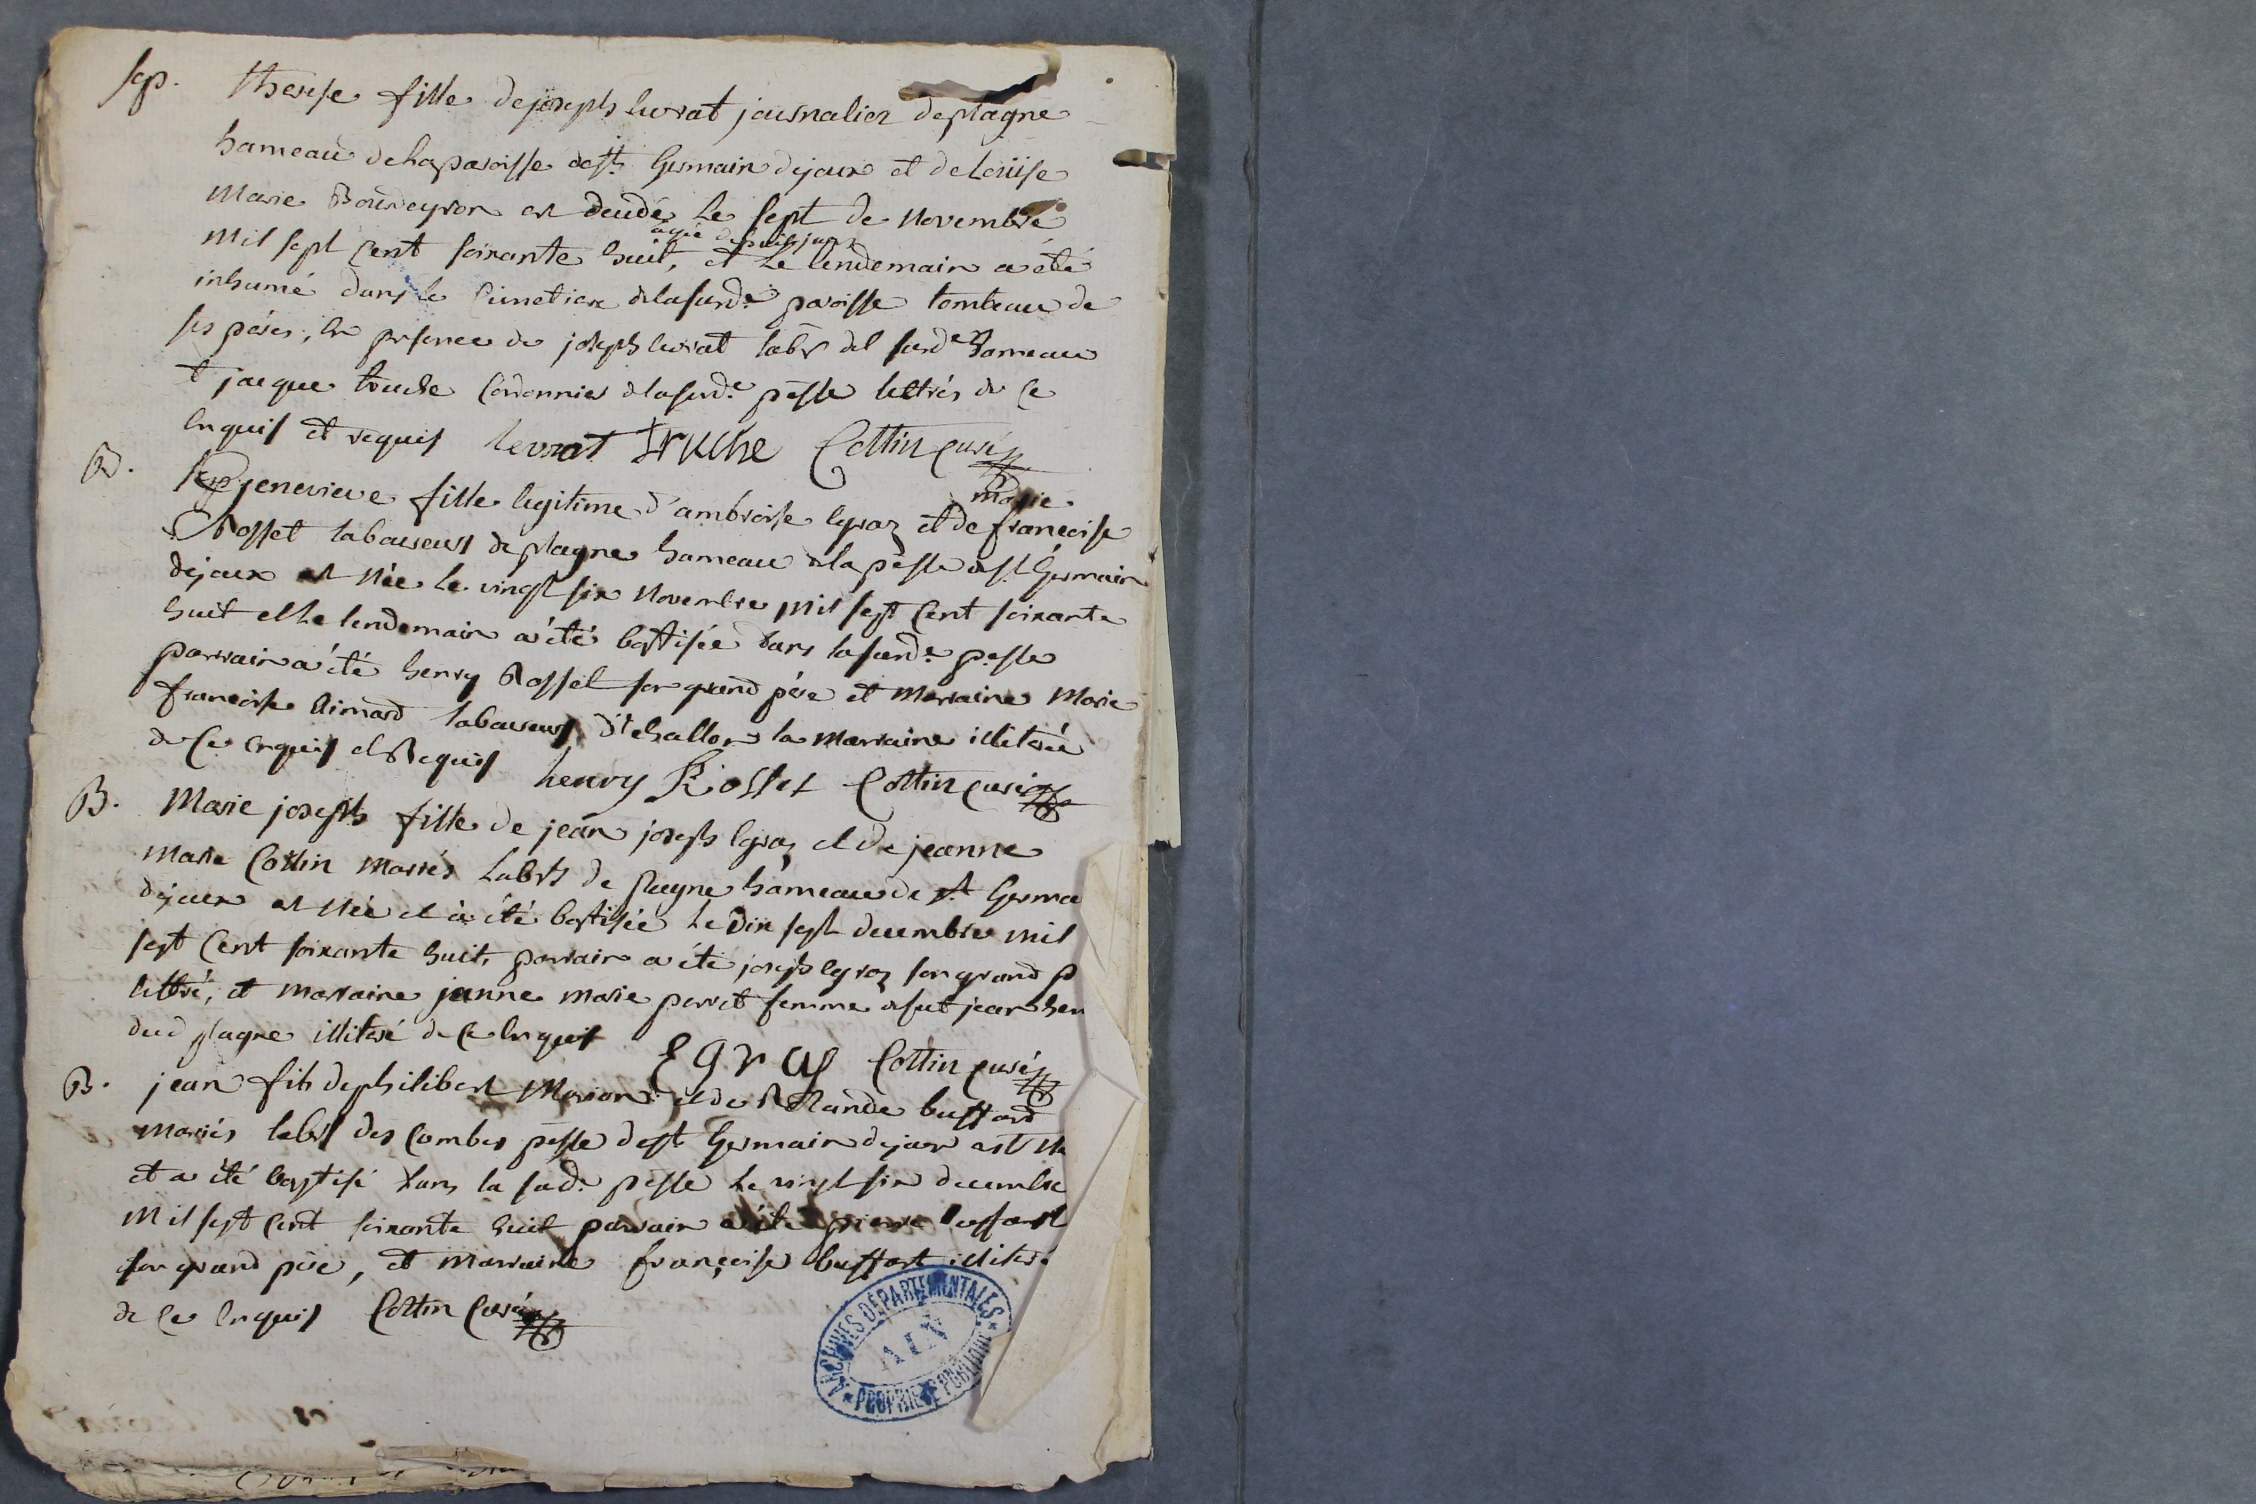 sep. therese fille de joseph levrat journalier de plagne
hameau de la paroisse de st. Germain de joux et de Loüise
Marie Bourdeyron est deudé le sept de Novembre
agée de huit jours
mil sept cent soixante huit, et le lendemain a été
inhumé dans le cimetiere de la susde. paroisse tombeau de
ses péres, en presence de joseph levrat labr del susde hameau
et jacque truche cordonnier de la susde. pesse lettrés de ce
enquis et requis levrat truche Cottin curé
B. genevieve fille legitime d'ambroise Egraz et de françoise
marie
Rosset laboureurs de plagne hameau de la pesse de st. Germain
dejoux est née le vingt six Novembre mil sept cent soixante
huit et le lendemain a été baptisée dans la susde. pesse
parrain a été henry Rosset son grand pére et Marraine Marie
françoise Aimard laboureurs d'Echallon la marraine illiterée
de ce enquis et Requis henry Rosset Cottin curé
B. Marie joseph fille de jean joseph Egraz et de jeanne
Marie Cottin mariés Labrs de plagne hameau de st Germa
dejoux est née et a été baptisée le dix sept decembre mil
sept cent soixante huit, parrain a été joseph egraz son grand p
lettré, et marraine jeanne marie perret femme de fut jean hen
dud plagne illiteré de ce enquis Egras Cottin curé
B. jean fils de philibert Marion et de Rolande buffard
mariés labrs des Combes pesse de st Germain dejoux est né
et a été baptisé dans la susde. pesse le vingt six decembre
Mil sept cent soixante huit parrain a été pierre buffard
son grand pére, et marraine françoise buffart illiteré
de ce enquis Cottin Curé
ARCHIVES DÉPARTEMENTALES
AIN
PROPRIÉTÉ PUBLIQUE